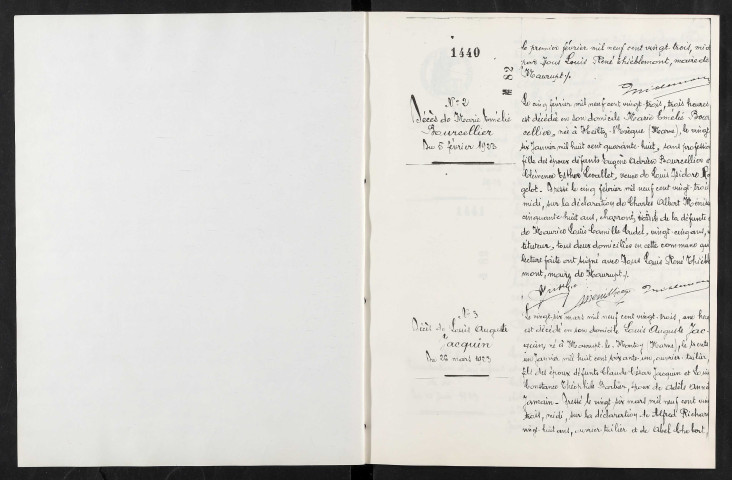 1440
M 82
le premier février mil neuf cent vingt trois, midi
par Nous Louis René Thiéblemont, maire de
Maurupt ./.
N° 2
Décès de Marie Emélie
Bourcellier
Du 5 février 1923
Le cinq février mil neuf cent vingt trois, trois heures
est décédée en son domicile Marie Emélie Bour
cellier, née à Heiltz l'Evêque (Marne), le vingt
six Janvier mil huit cent quarante huit, sans profession
fille des époux défunts Eugène Adrien Bourcellier e
Clémence Esther Levallet, veuve de Louis Isidore
gelot. Dressé le cinq février mil neuf cent vingt trois
midi, sur la déclaration de Charles Albert
cinquante huit ans, de la défunte e
de Maurice Louis Camille Trudel, vingt cinq ans,
tituteur, tous deux domiciliés en cette commune qui
lecture faite ont signé avec Nous Louis René Thiéble
mont, maire de Maurupt ./.
N° 3
Décès de Louis Auguste
Jacquin
Du 26 mars 1923
Le vingt six mars mil neuf cent vingt trois, une heure
est décédé en son domicile Louis Auguste Jac-
quin, né à Maurupt le Montoy (Marne), le trente
un Janvier mil huit cent soixante un, ouvrier tuilier,
fils des époux défunts Claude César Jacquin et
Constance Barbier, époux de Adèle
Dressé le vingt six mars mil neuf cent vingt
trois, midi, sur la déclaration de Alfred Richard
vingt huit ans, ouvrier tuilier et de Abel